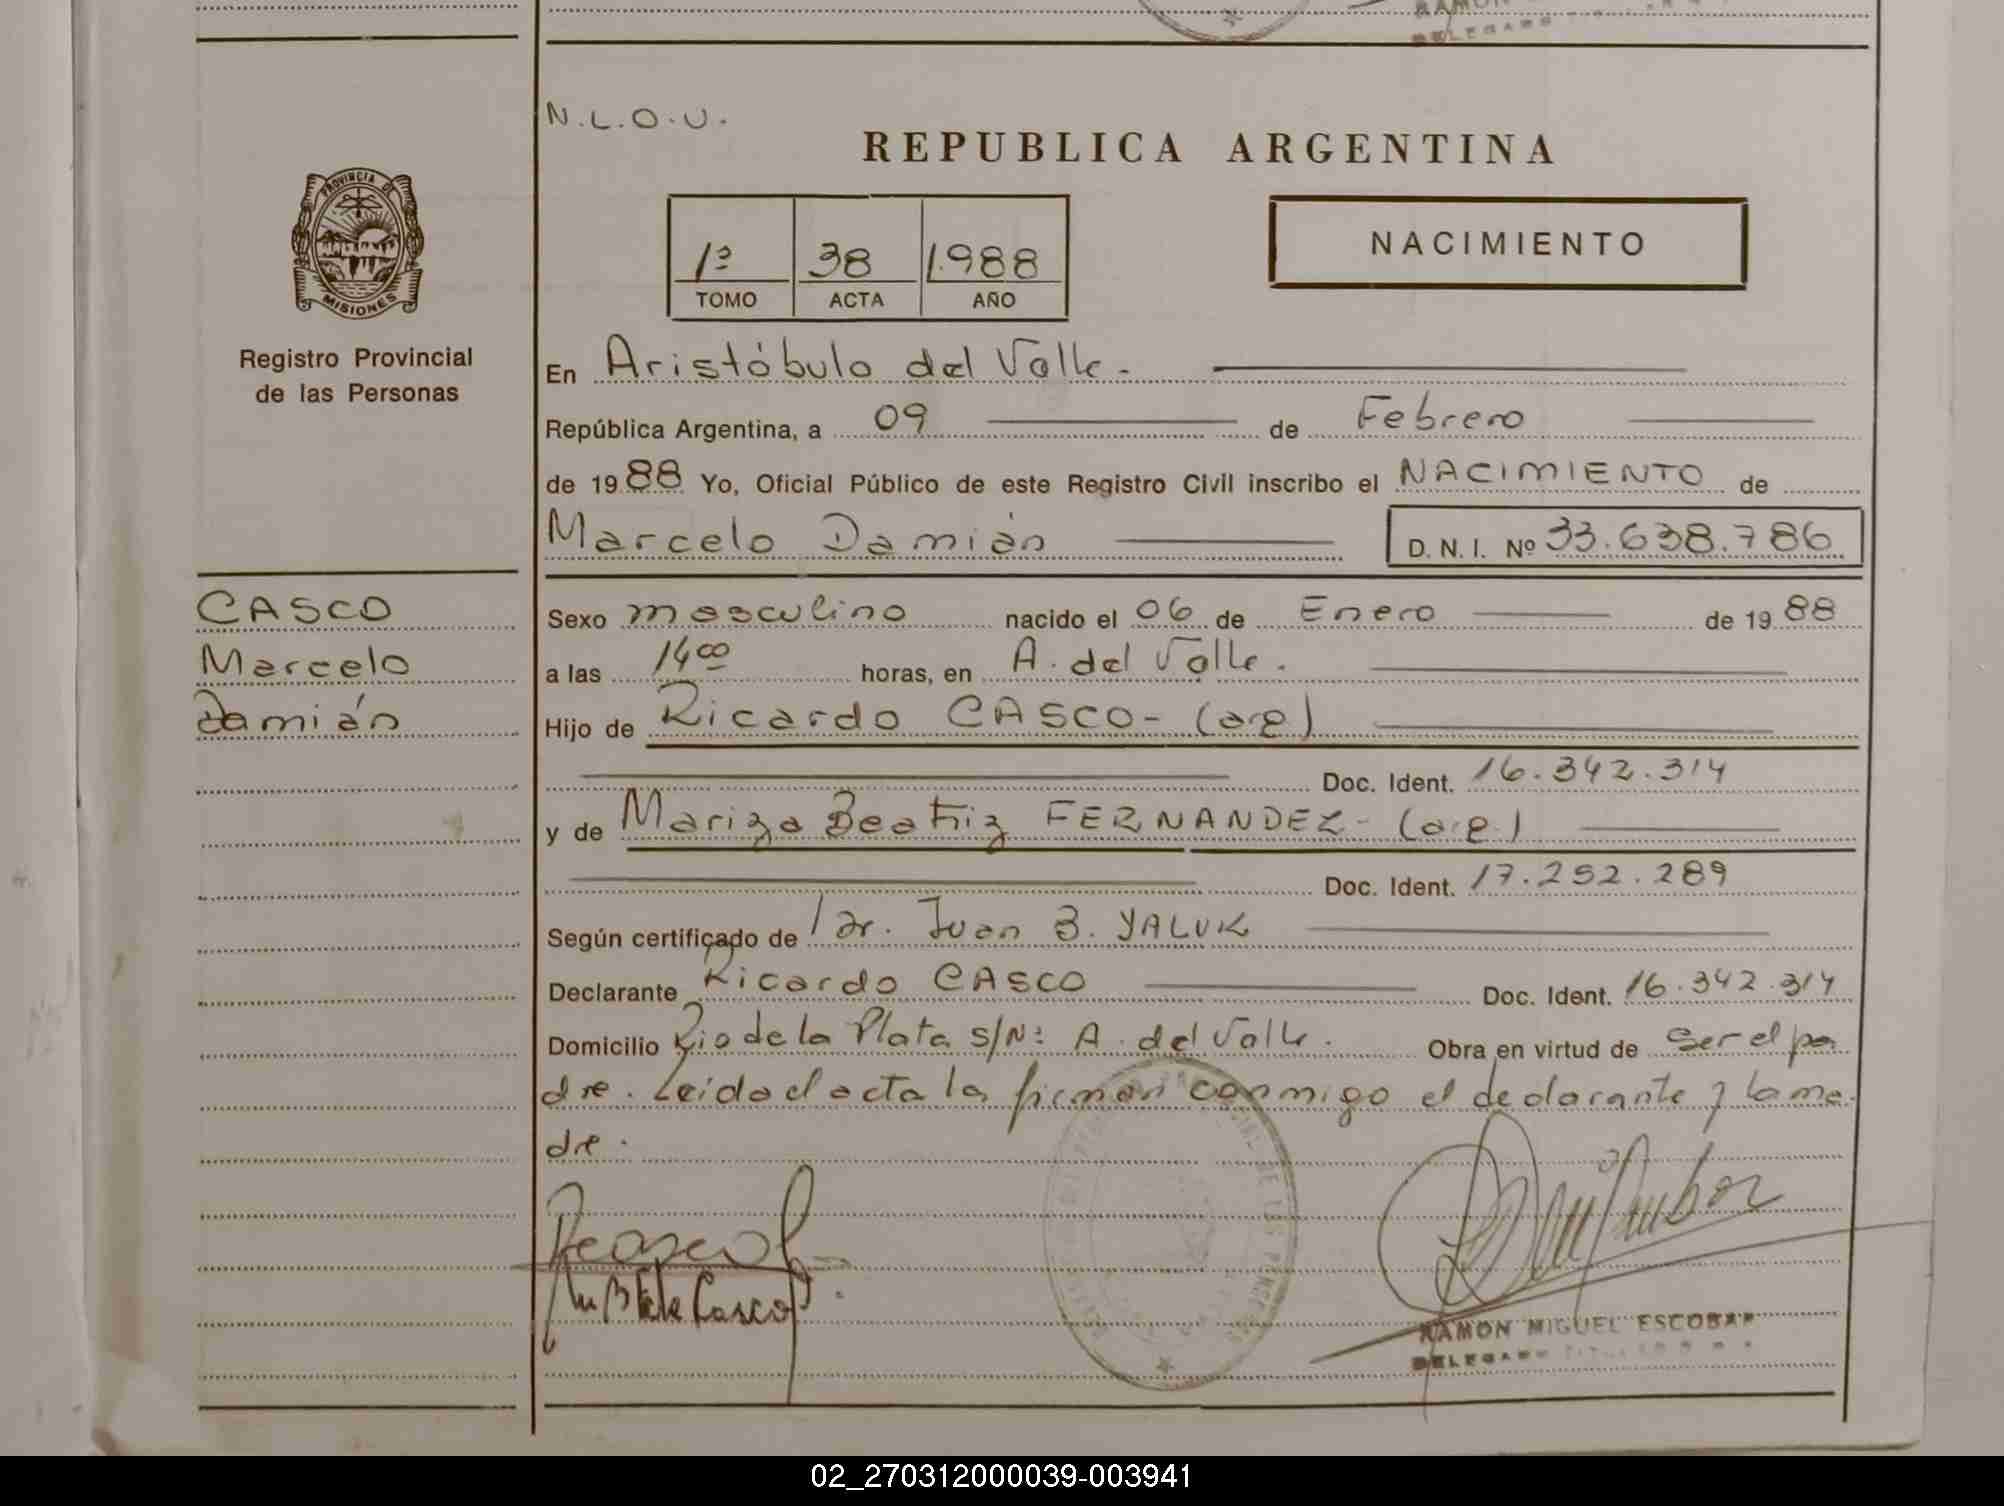 RAMON
DELEGADO
N.L.O.U.
REPUBLICA ARGENTINA
PROVINCIA DE
MISIONES
Registro Provincial
de las Personas
1º 38 1.988
TOMO ACTA AÑO
NACIMIENTO
En Aristóbulo del Valle.
República Argentina, a 09 de Febrero
de 1988 Yo, Oficial Público de este Registro Civil inscribo el NACIMIENTO de
Marcelo Damián D. N. I. Nº 33.638.786
CASCO
Marcelo
Damián
Sexo masculino nacido el 06 de Enero de 1988
a las 14 00 horas, en A. del Valle.
Hijo de Ricardo CASCO- (arg)
Doc. Ident. 16.342.314
y de Mariza Beatriz FERNANDEZ- (arg)
Doc. Ident. 17.252.289
Según certificado de Dr. Juan B. YALUK
Declarante Ricardo CASCO Doc. Ident. 16.342.314
Domicilio Rio de la Plata S/Nº A. del Valle. Obra en virtud de ser el pa
dre. Leida el acta la firman conmigo el declarante y la ma-
dre.
Casco
RAMON MIGUEL ESCOBAR
DELEGADO
02_270312000039-003941